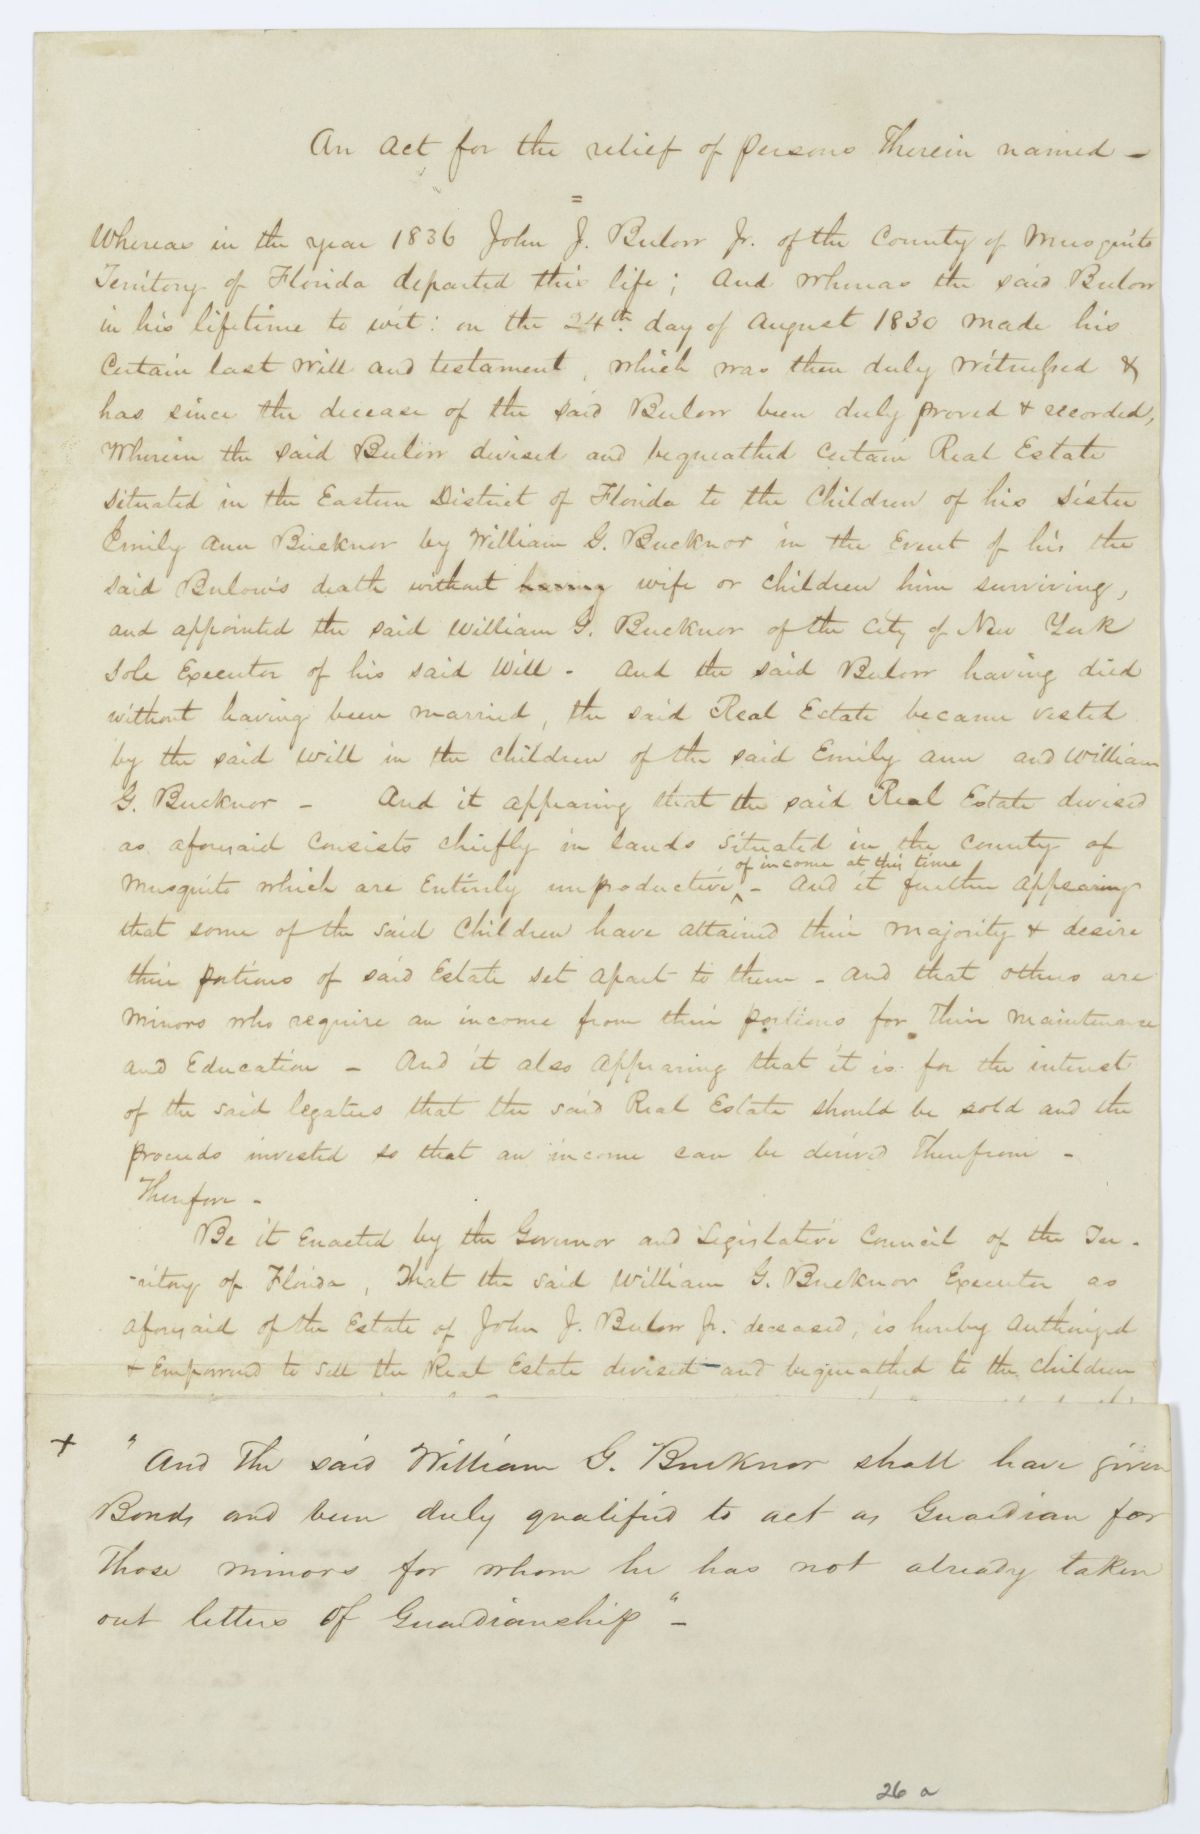 An Act for the relief of persons Therein named -
=
Whereas in the year 1836 John J. Bulow Jr. of the County of Musquito
Territory of Florida departed this life; And whereas the said Bulow
in his lifetime to wit: on the 24th day of August 1830 made his
Certain last Will and testament, which was then duly witnessed &
has since the decease of the said Bulow been duly proved & recorded,
Wherein the said Bulow devised and bequeathed Certain Real Estate
situated in the Eastern District of Florida to the Children of his Sister
Emily Ann Bucknor by William G. Bucknor in the Event of his the
said Bulow's death without having wife or children him surviving,
and appointed the said William G. Bucknor of the City of New York
Sole Executor of his said Will - And the said Bulow having died
without having been married, the said Real Estate became vested
by the said Will in the Children of the said Emily Ann and William
G. Bucknor - And it appearing that the said Real Estate devised
as aforesaid Consists chiefly in lands situated in the County of
of income at this time
Musquito which are Entirely unproductive ^ - And it further appearing
that some of the said Children have attained their majority & desire
their portions of said Estate set apart to them - And that others are
Minors who require an income from their portions for their maintenance
and Education - And it also appearing that it is for the interest
of the said legatees that the said Real Estate should be sold and the
proceeds invested so that an income can be derived Therefrom -
Therefore -
Be it Enacted by the Governor and Legislative Council of the Ter-
-ritory of Florida, That the said William G. Bucknor Executor as
aforesaid of the Estate of John J. Bulow Jr. deceased, is hereby Authorized
& Empowered to sell the Real Estate devised and bequeathed to the Children
+ "And The said William G. Bucknor shall have given
Bonds and been duly qualified to act as Guardian for
those minors for whom he has not already taken
out letters of Guardianship" -
26 a